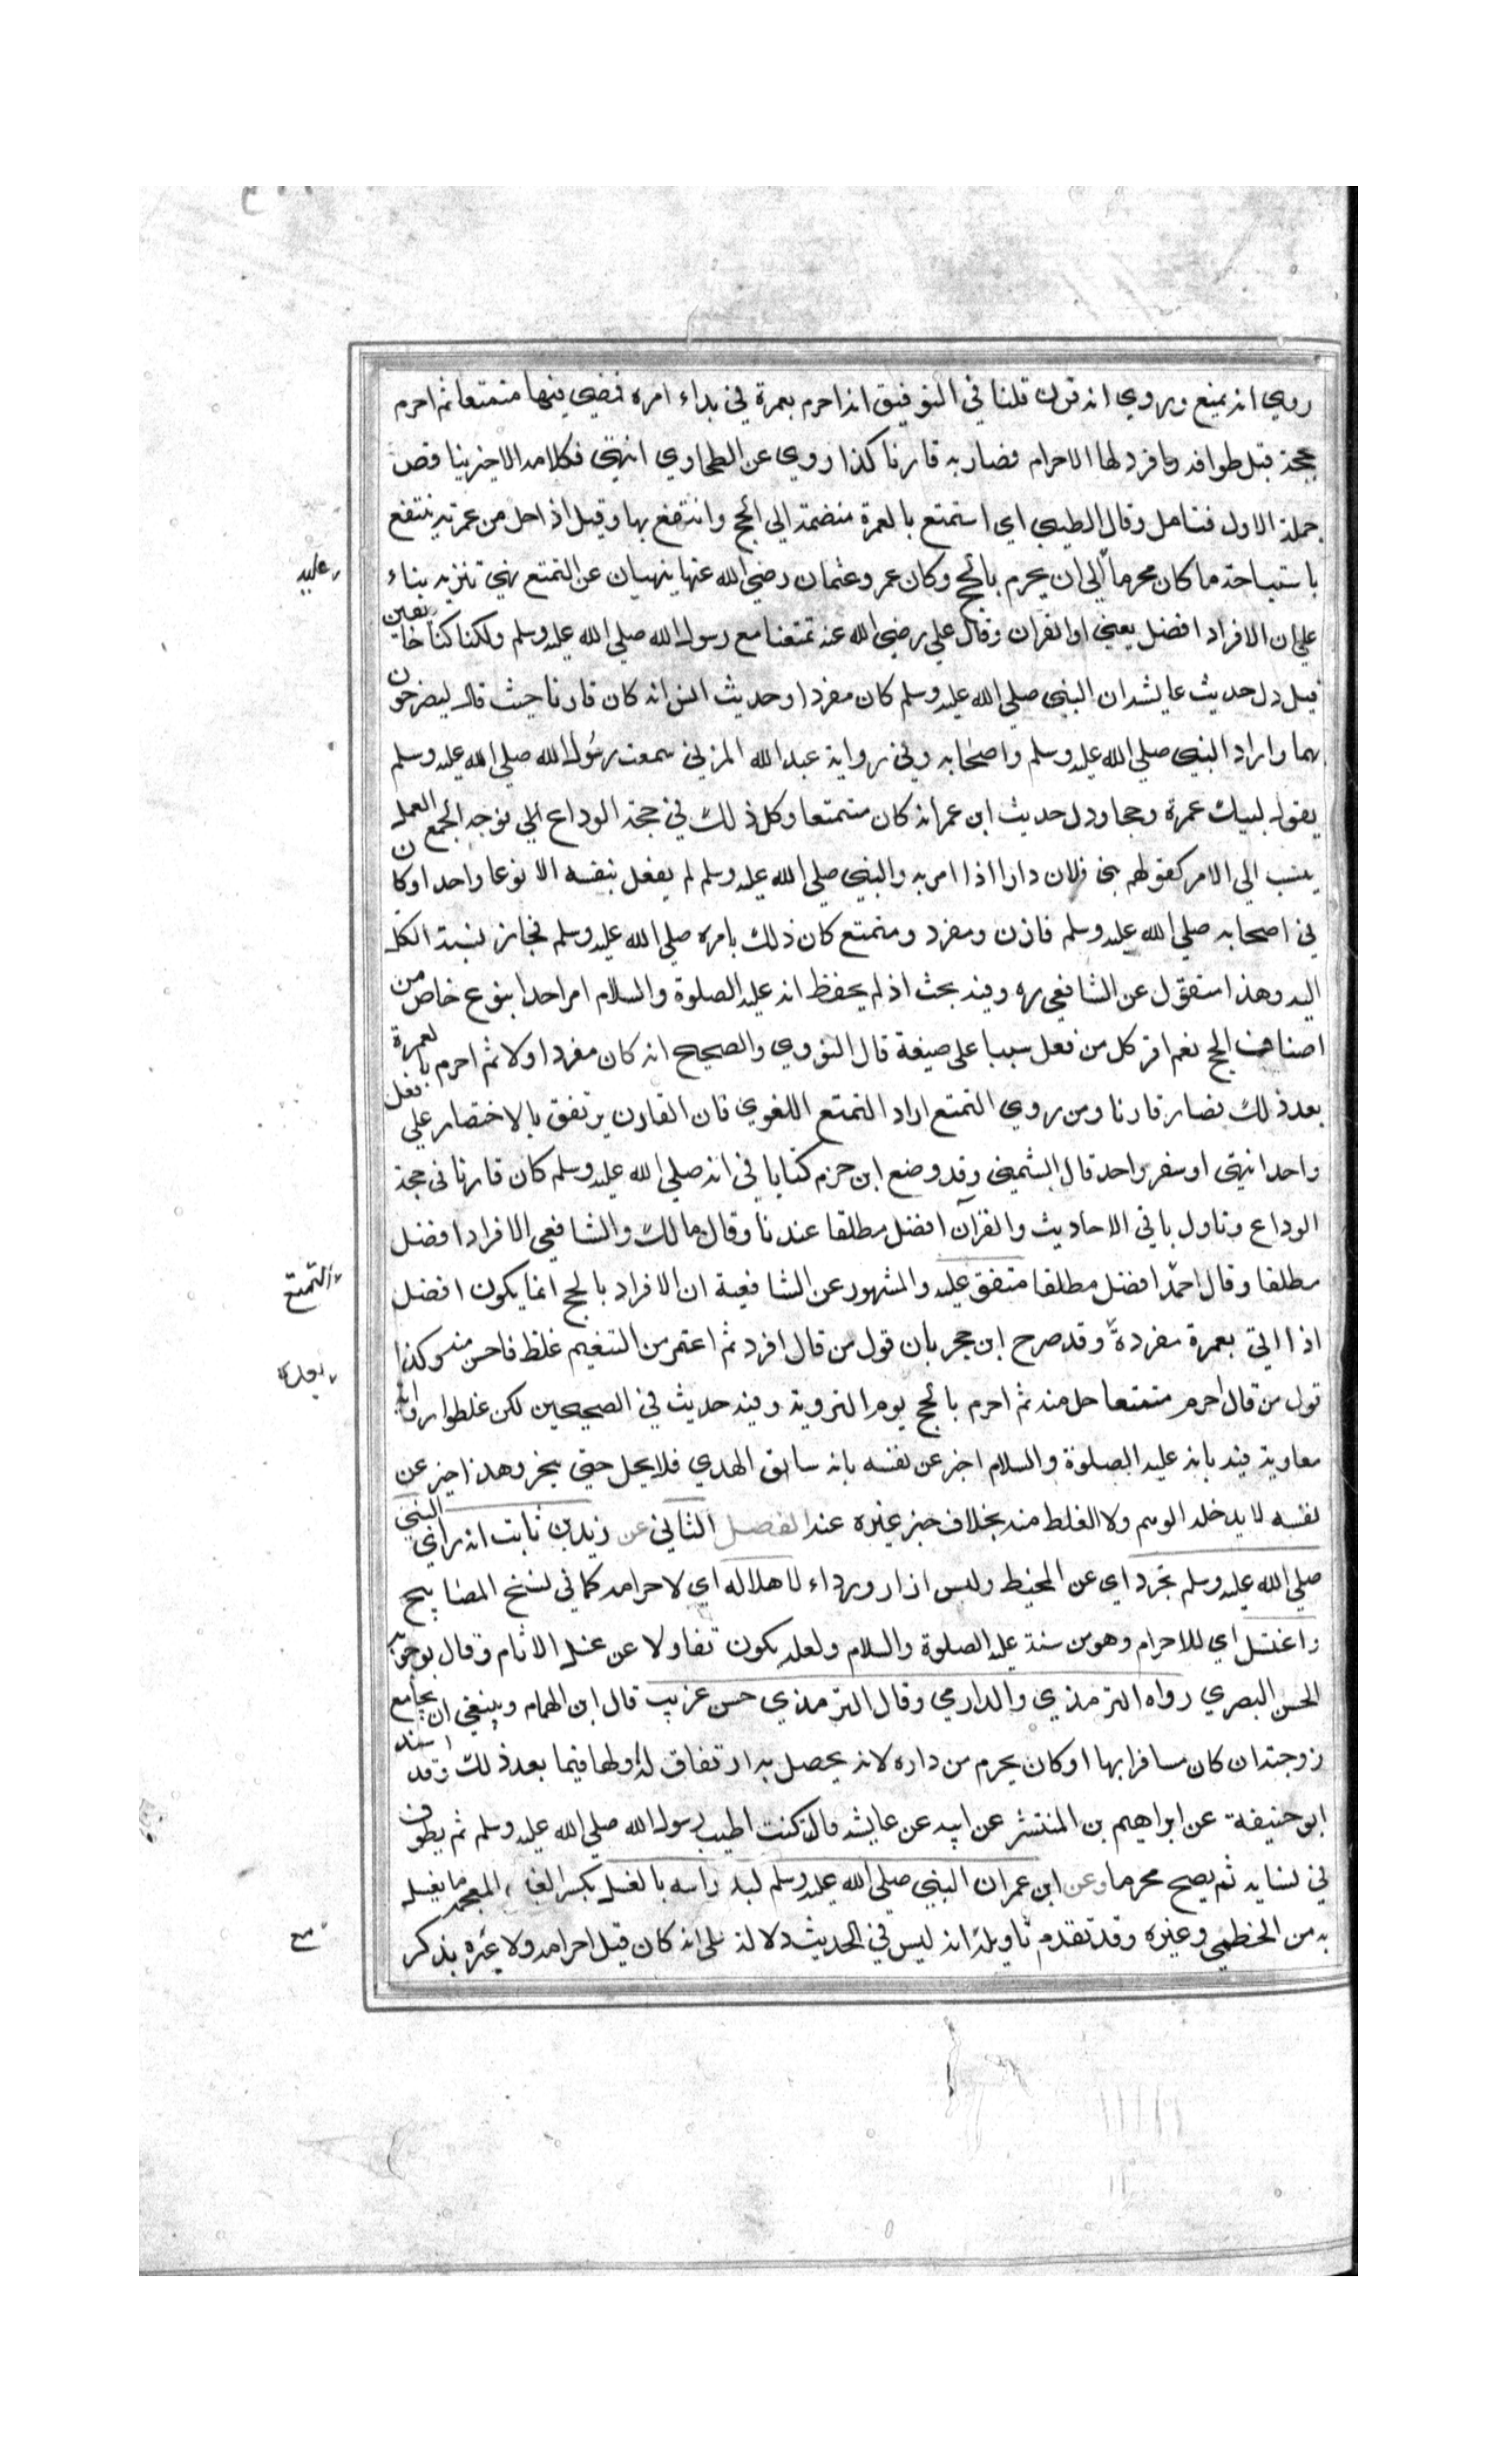 روي انه تمتع وروي انه قرن قلنا في التوفيق انه احرم بعمرة في بداء امره فمضي فيها متمتعا ثم احرم
بحجة قبل طوافه وافرد لها الاحرام فصار به قارنا كذا روي عن الطحاوي انتهي فكلامه الاخير يناقض
جملة الاول فتامل وقال الطيبي اي استمتع بالعمرة منضمة الي الحج وانتفع بها وقيل اذا حل من عمرته ينتفع
باستباحة ما كان محرما الي ان يحرم بالحج وكان عمر وعثمان رضي الله عنهما ينهيان عن التمتع نهي تنزيه بناء
عليه
علي ان الافراد افضل يعني او القران وقال علي رضي الله عنه تمتعنا مع رسول الله صلي الله عليه وسلم ولكنا كنا خائفين
قيل دل حديث عايشة ان النبي صلي الله عليه وسلم كان مفردا وحديث انس انه كان قارنا حيث قال ليصرخون
بهما واراد النبي صلي الله عليه وسلم واصحابه وفي رواية عبد الله المزني سمعت رسول الله صلي الله عليه وسلم
يقول لبيك عمرة وحجا ودل حديث ابن عمر انه كان متمتعا وكل ذلك في حجة الوداع الي توجه الجمع العمل
ينسب الي الامر كقولهم بنا فلان دارا اذا امر به والنبي صلي الله عليه وسلم لم يفعل بنفسه الا نوعا واحدا وكان
في اصحابه صلي الله عليه وسلم قارن ومفرد ومتمتع كان ذلك بامره صلي الله عليه وسلم فجاز نسبة الكل
اليه وهذا منقول عن الشافعي ره وفيه بحث اذ لم يحفظ انه عليه الصلوة والسلام امر احدا بنوع خاص من
اصناف الحج نعم اقر كل من فعل سببا علي صيغة قال النووي والصحيح انه كان مفردا اولا ثم احرم بالعمرة
بعد ذلك فصار قارنا ومن روي التمتع اراد التمتع اللغوي فان القارن يرتفق بالاختصار علي فعل
واحد انتهي او سفر واحد قال الشمني وقد وضع ابن حزم كتابا في انه صلي الله عليه وسلم كان قارنا في حجة
الوداع وتاول باقي الاحاديث والقران افضل مطلقا عندنا وقال مالك والشافعي الافراد افضل
مطلقا وقال احمد افضل مطلقا متفق عليه والمشهور عن الشافعية ان الافراد بالحج انما يكون افضل
التمتع
اذا اتي بعمرة مفردة وقد صرح ابن حجر بان قول من قال افرد ثم اعتمر من التنعيم غلط فاحش منه وكذا
بعده
قول من قال احرم متمتعا حل منه ثم احرم بالحج يوم التروية وفيه حديث في الصحيحين لكن غلطوا رواية
معاوية فيه بانه عليه الصلوة والسلام اخبر عن نفسه بانه سابق الهدي فلا يحل حتي ينحر وهذا خبر عن
نفسه لا يدخله الوهم ولا الغلط منه بخلاف خبر غيره عنه الفصل الثاني عن زيد بن ثابت انه راي النبي
صلي الله عليه وسلم تجرد اي عن المخيط ولبس ازار ورداء لاهلاله اي لاحرامه كما في نسخ المصابيح
واغتسل اي للاحرام وهو من سنة عليه الصلوة والسلام ولعله يكون تفاولا عن غسل الاثام وقال بوجوبه
الحسن البصري رواه الترمذي والدارمي وقال الترمذي حسن غريب قال ابن الهمام وينبغي ان يجامع
زوجته ان كان مسافرا بها او كان يحرم من داره لانه يحصل به ارتفاق له ولها فيما بعد ذلك وقد اسند
ابو حنيفة عن ابراهيم بن المنتشر عن ابيه عن عايشة قالت كنت اطيب رسول الله صلي الله عليه وسلم ثم يطوف
في نسايه ثم يصبح محرما وعن ابن عمر ان النبي صلي الله عليه وسلم لبد راسه بالغسل بكسر الغين المعجمة ما يغسل
به من الخطمي وغيره وقد تقدم تاويله انه ليس في الحديث دلالة علي انه كان قبل احرامه ولا غيره يذكر
مع